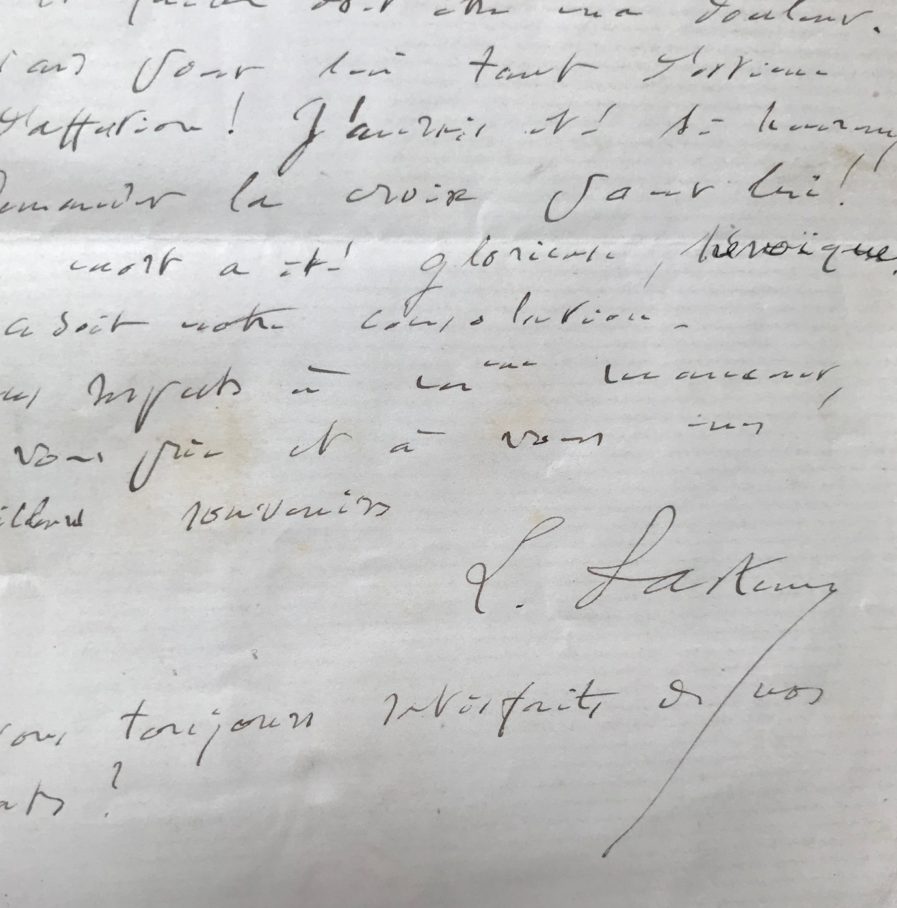 doit être ma douleur.
pour lui tant d'estime
d'affection! J'aurais été si heureux
demander la croix pour lui!
mort a été glorieuse, héroïque
soit notre consolation.
respects à
vous prie et à vous mes
meilleurs souvenirs
L.
vous toujours satisfaits de vos
?